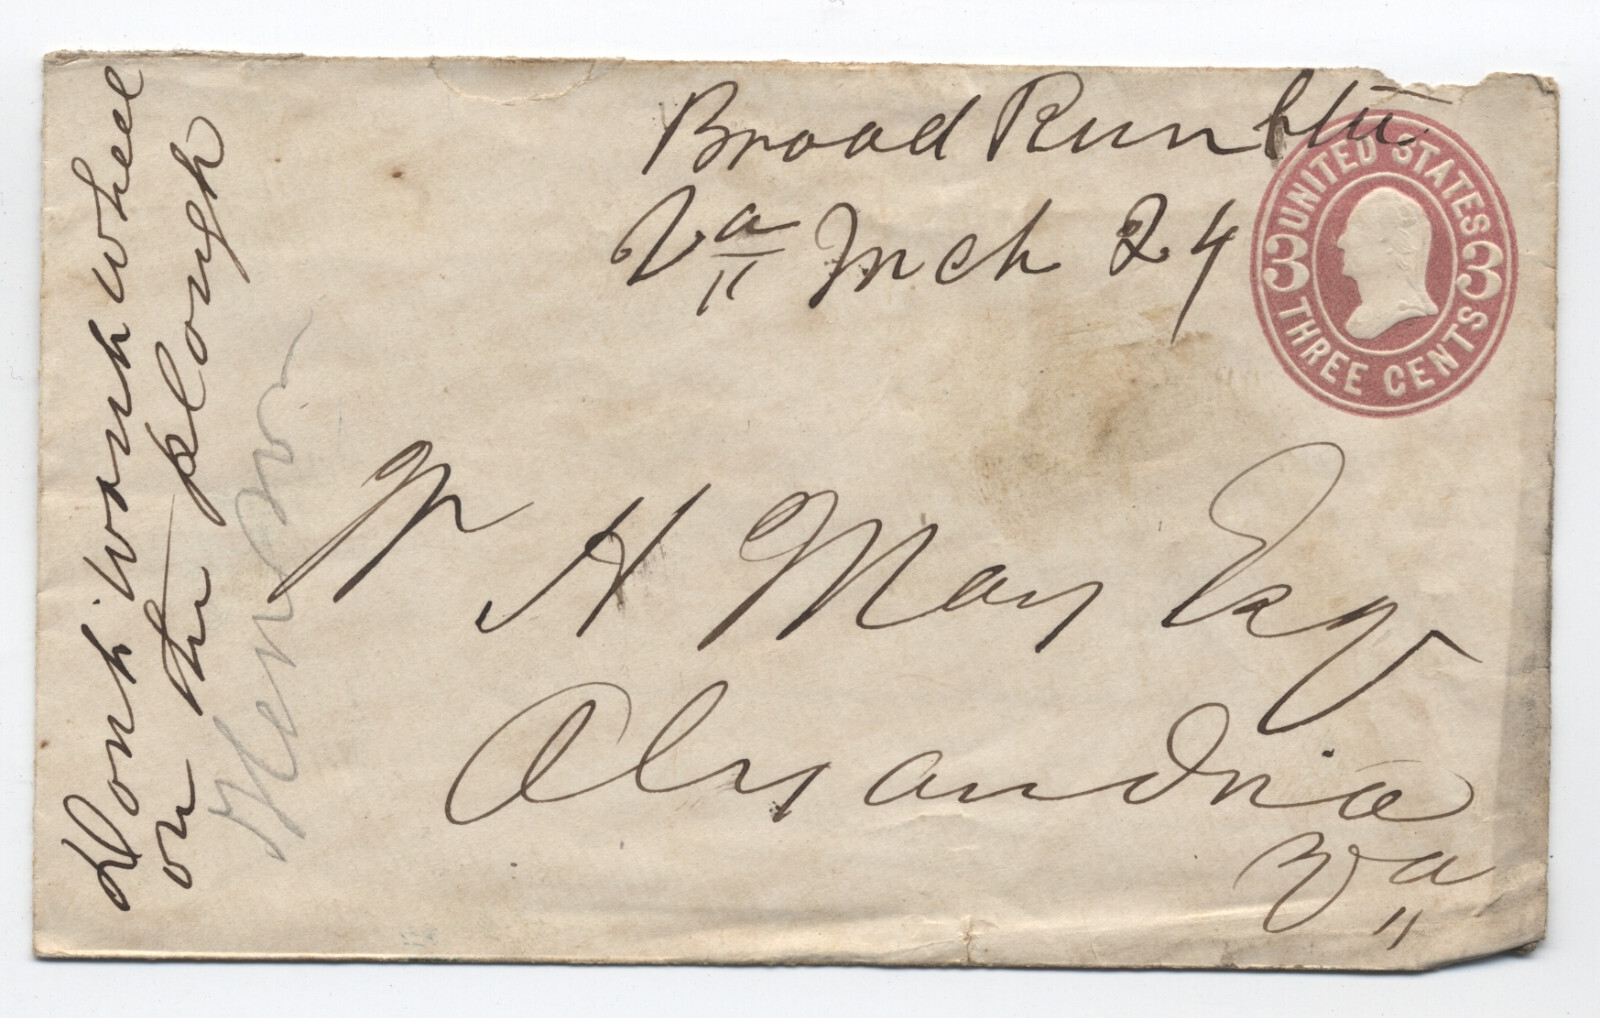 Broad Run Stn
Va Mch 24
UNITED STATES
3 3
THREE CENTS
Dont want wheel
on the plough
W H May Esq
Alexandria
Va